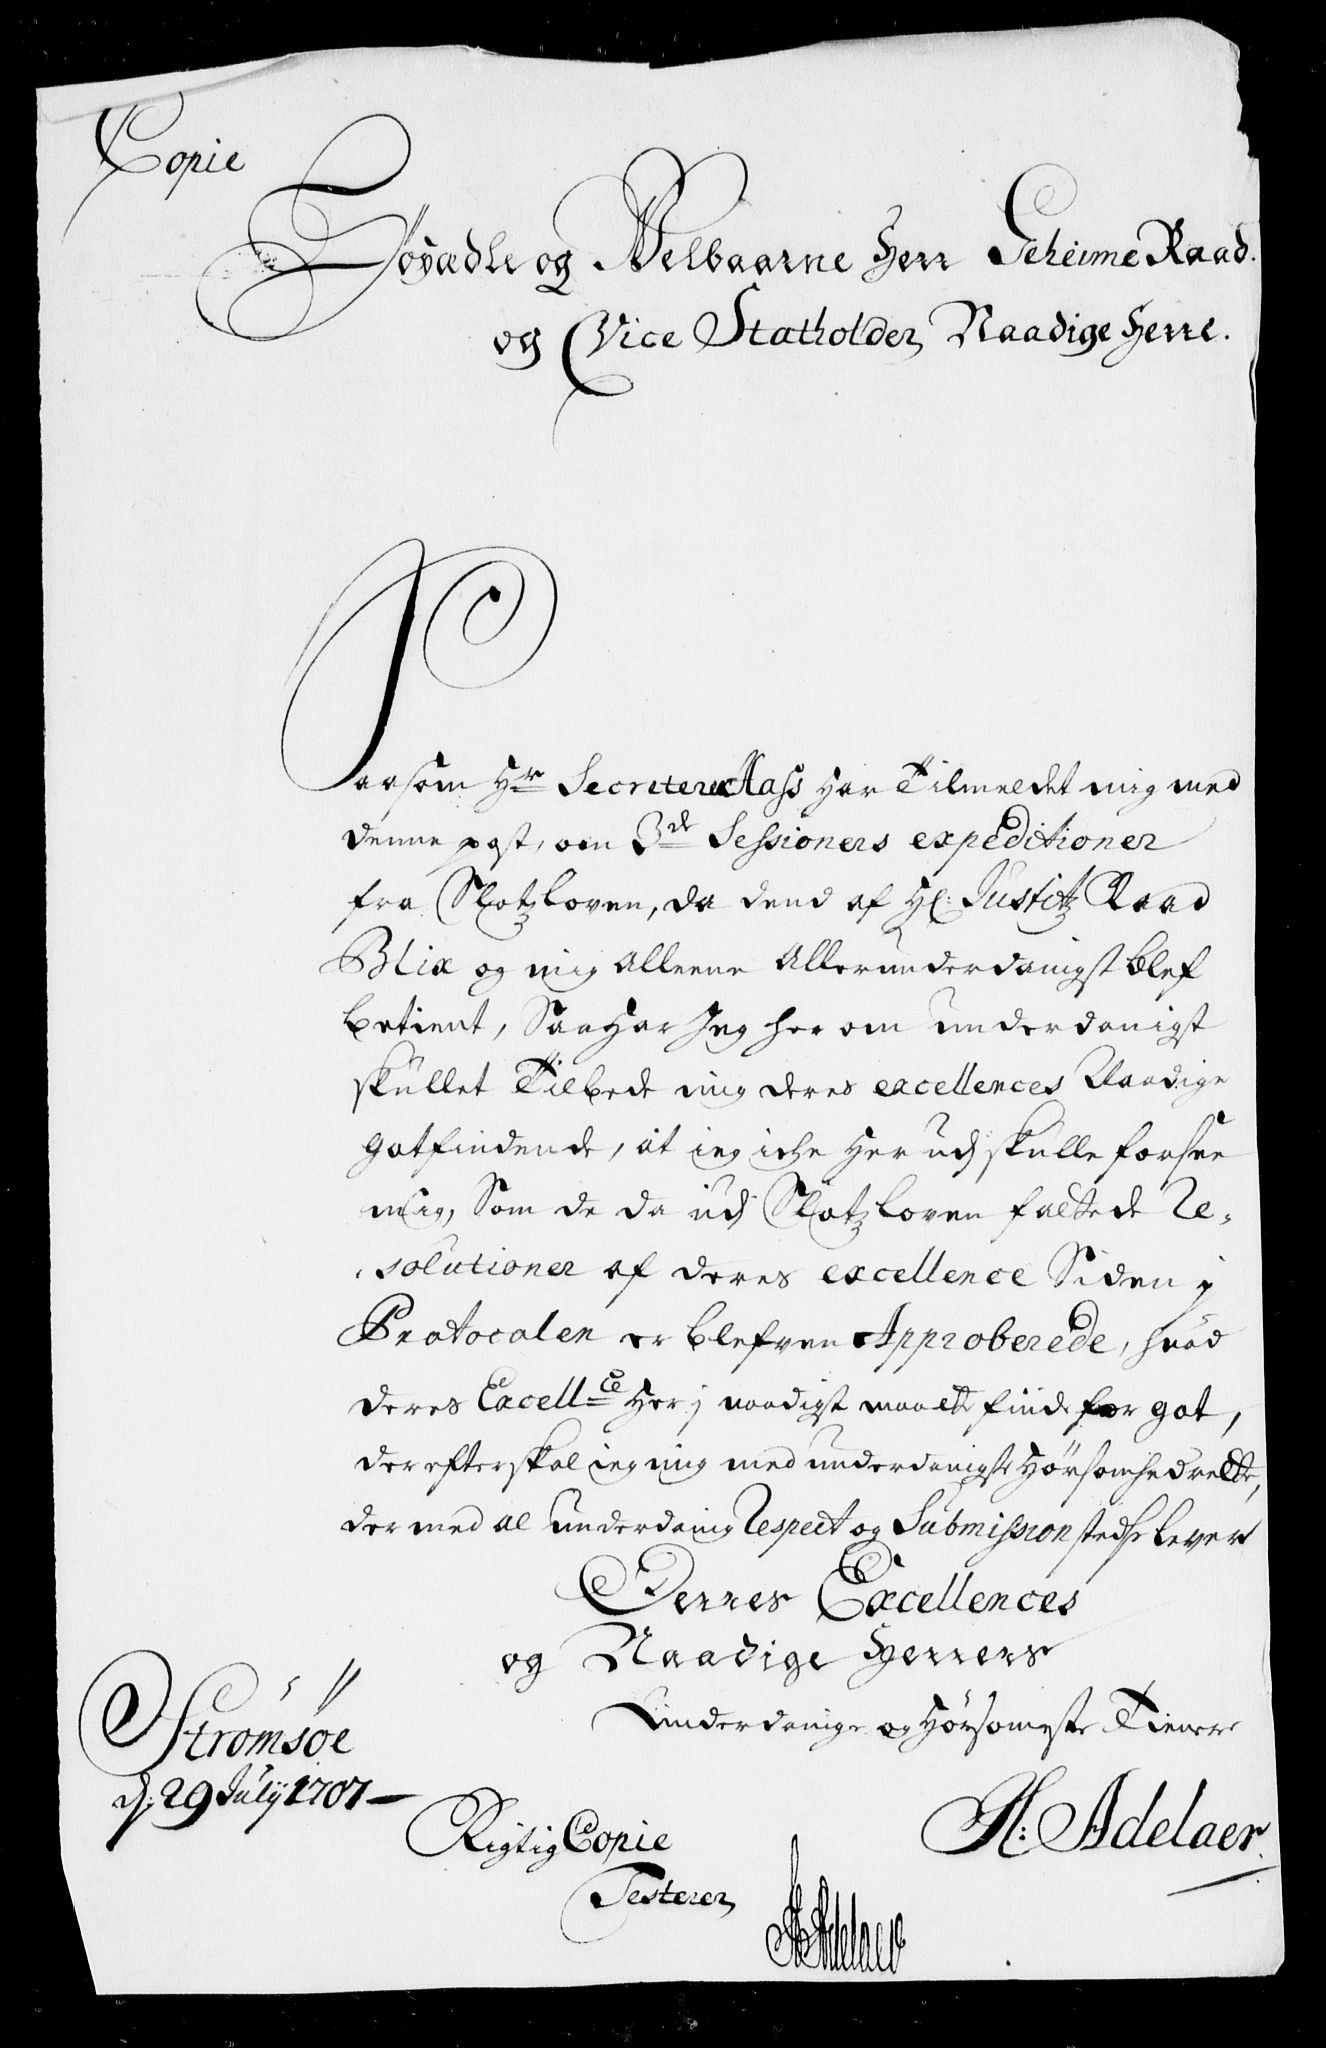 Copie
Høyædle og Velbaarne Herr Geheime Raad.
og Vice Statholder Naadige Herre.
Saasom Hr Secreterer Hass har Tilmeldet mig med
denne post, om 3de Sessioners expeditioner
fra Slotzloven, da dend af Hl: Justitz Raad
Blix og mig alleene Allerunderdanigst blef
betient, Saa har Jeg her om underdanigst
skullet Tilbede mig deres excellences Naadige
gotfindende, at ieg iche her udj skulle forsee
mig, Som de da udj Slotzloven faldede Re-
solutioner af deres excellence Siden j
Protocolen er blefven Approberede, hvad
deres Excellce her j naadigst maatte finde for got,
derefter skal ieg mig med underdanigste hørsomhed rette,
der med al underdanig Respect og Submission stedse lever
Deres Excellences
og Naadige Herrers
Underdanige og hørsomste Tienere
Strømsøe
d: 29 July 1707
H: Adelaer
Rigtig Copie
Testerer
H Adelaer